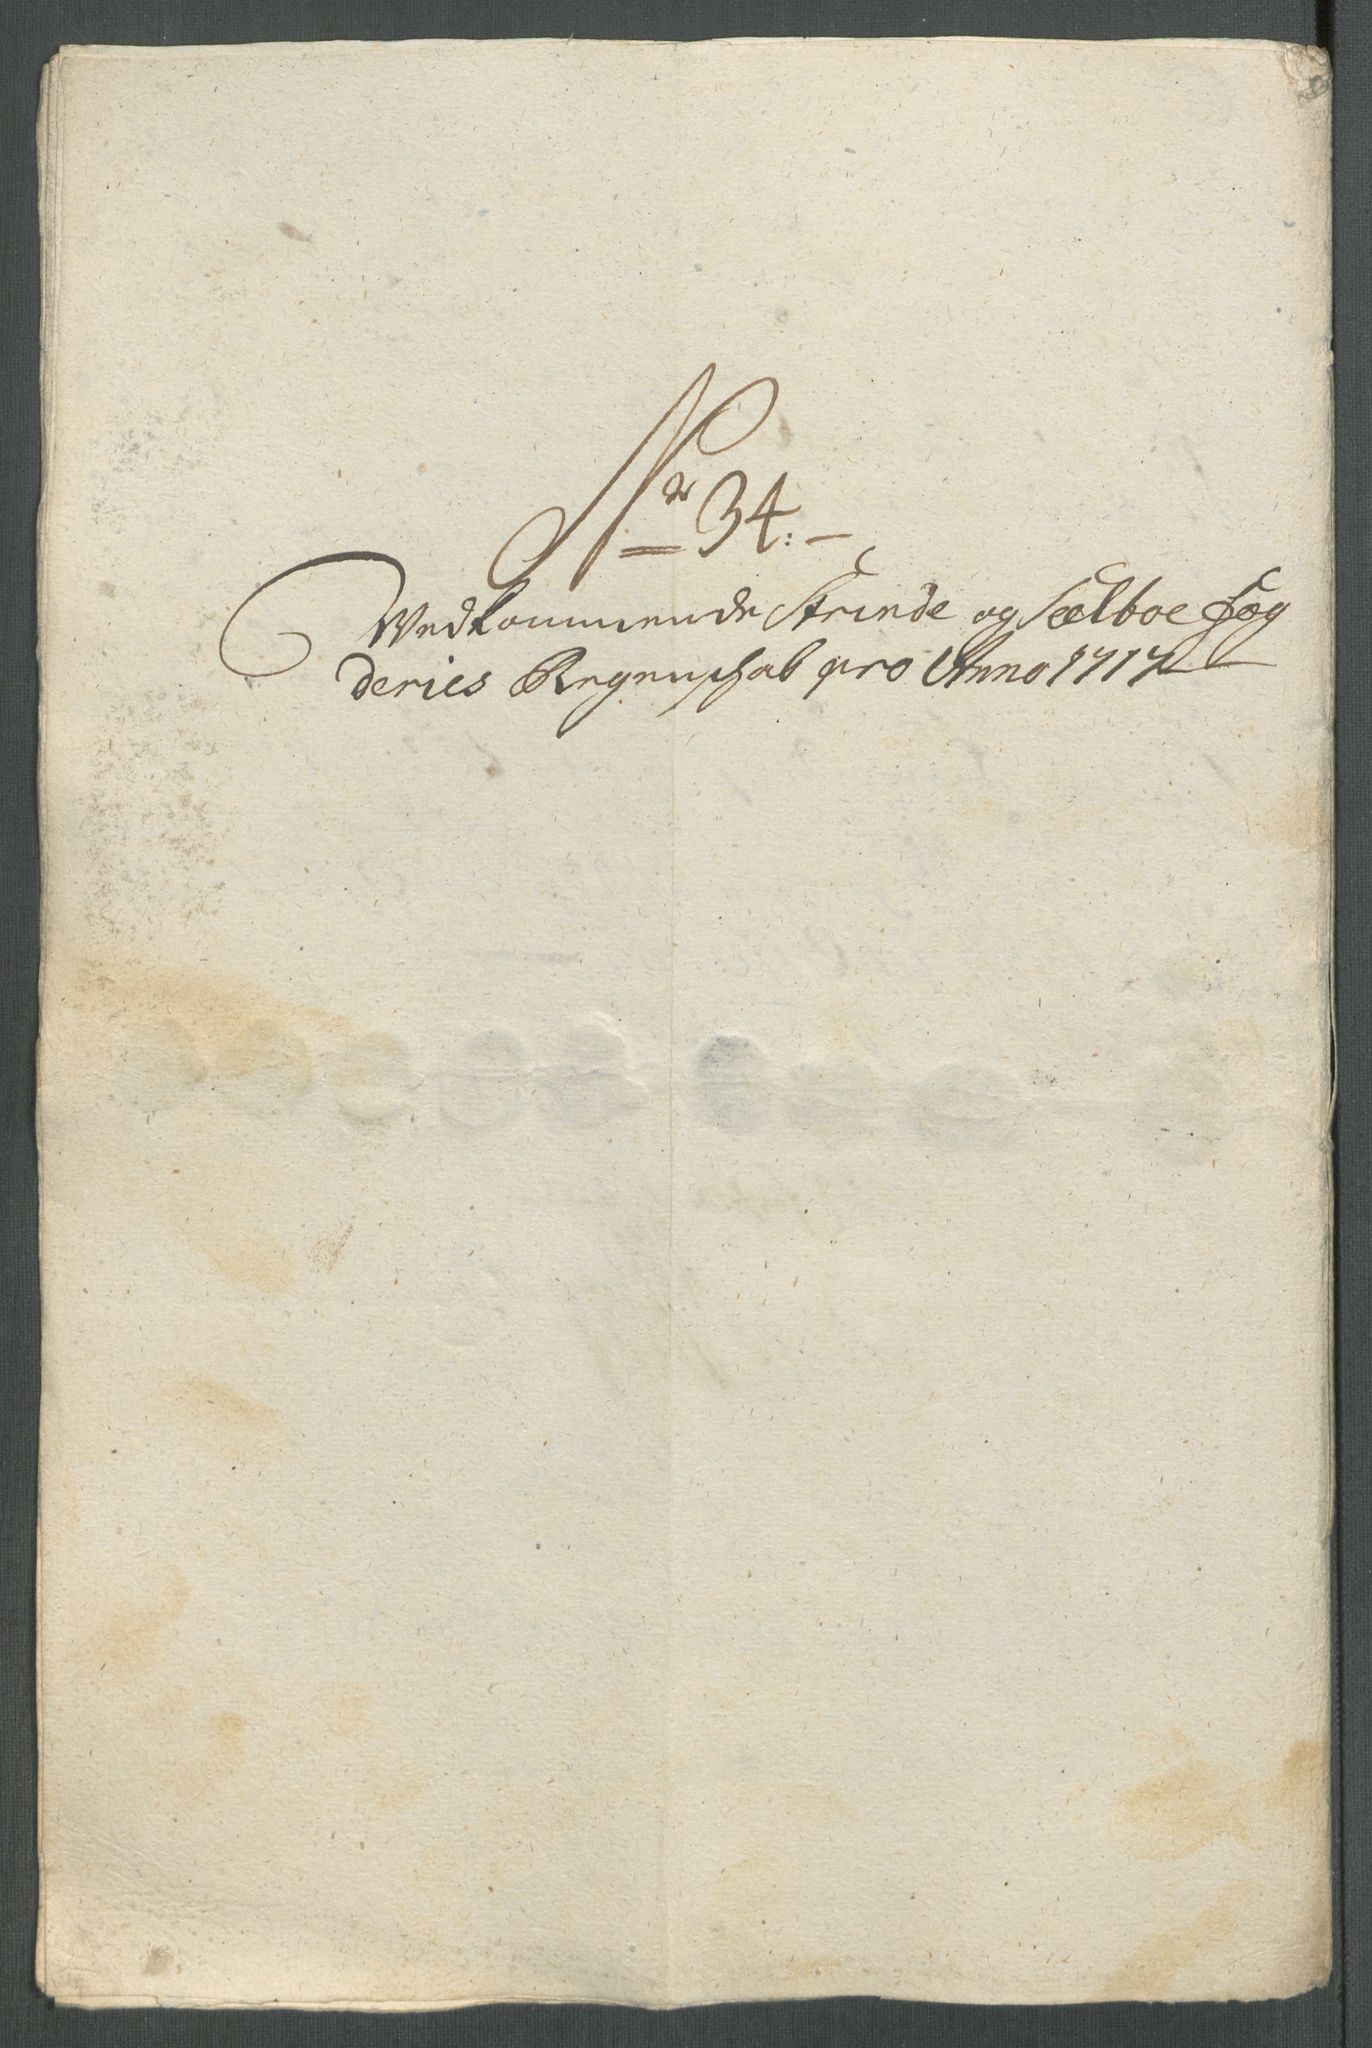 No 34.
Vedkommende Strinde og Sælboe Fog
deries Regenschab pro Anno 1717